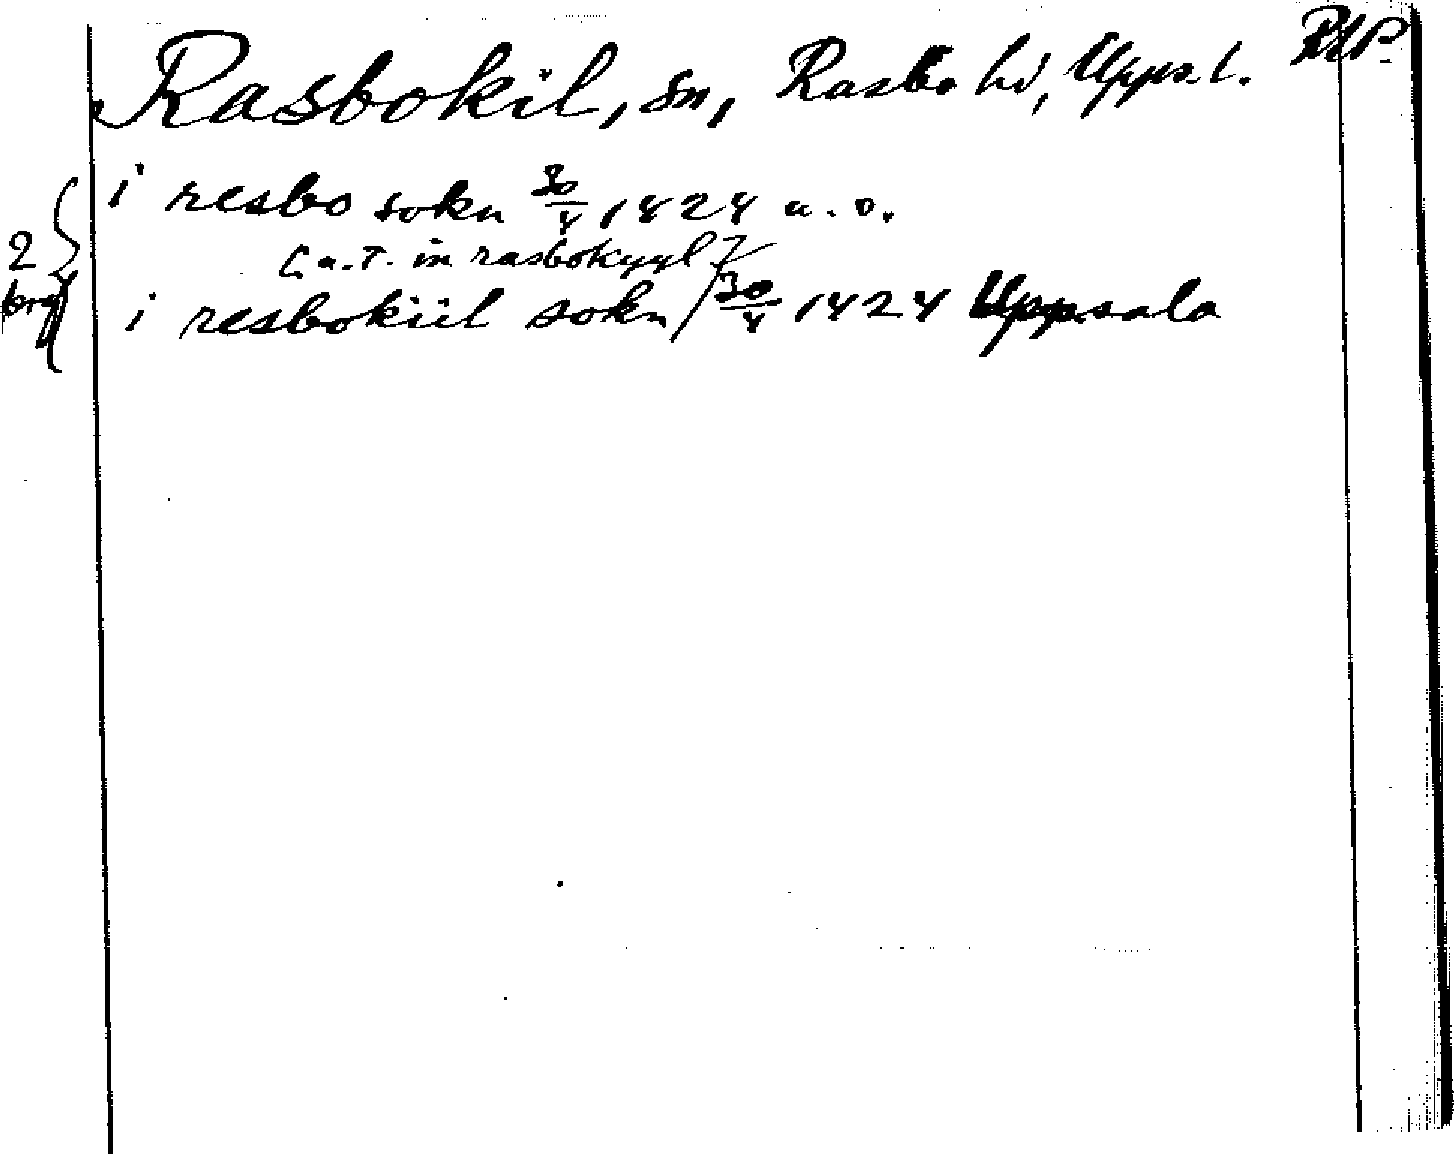 Rasbokil, sn, Rasbo hd, Upps. l. RAP.
i resbo sokn 30/4 1424 u. o.
[a. T. in rasbokyyl]
i resbokiil sokn 30/4 1424 Uppsala
2 brev